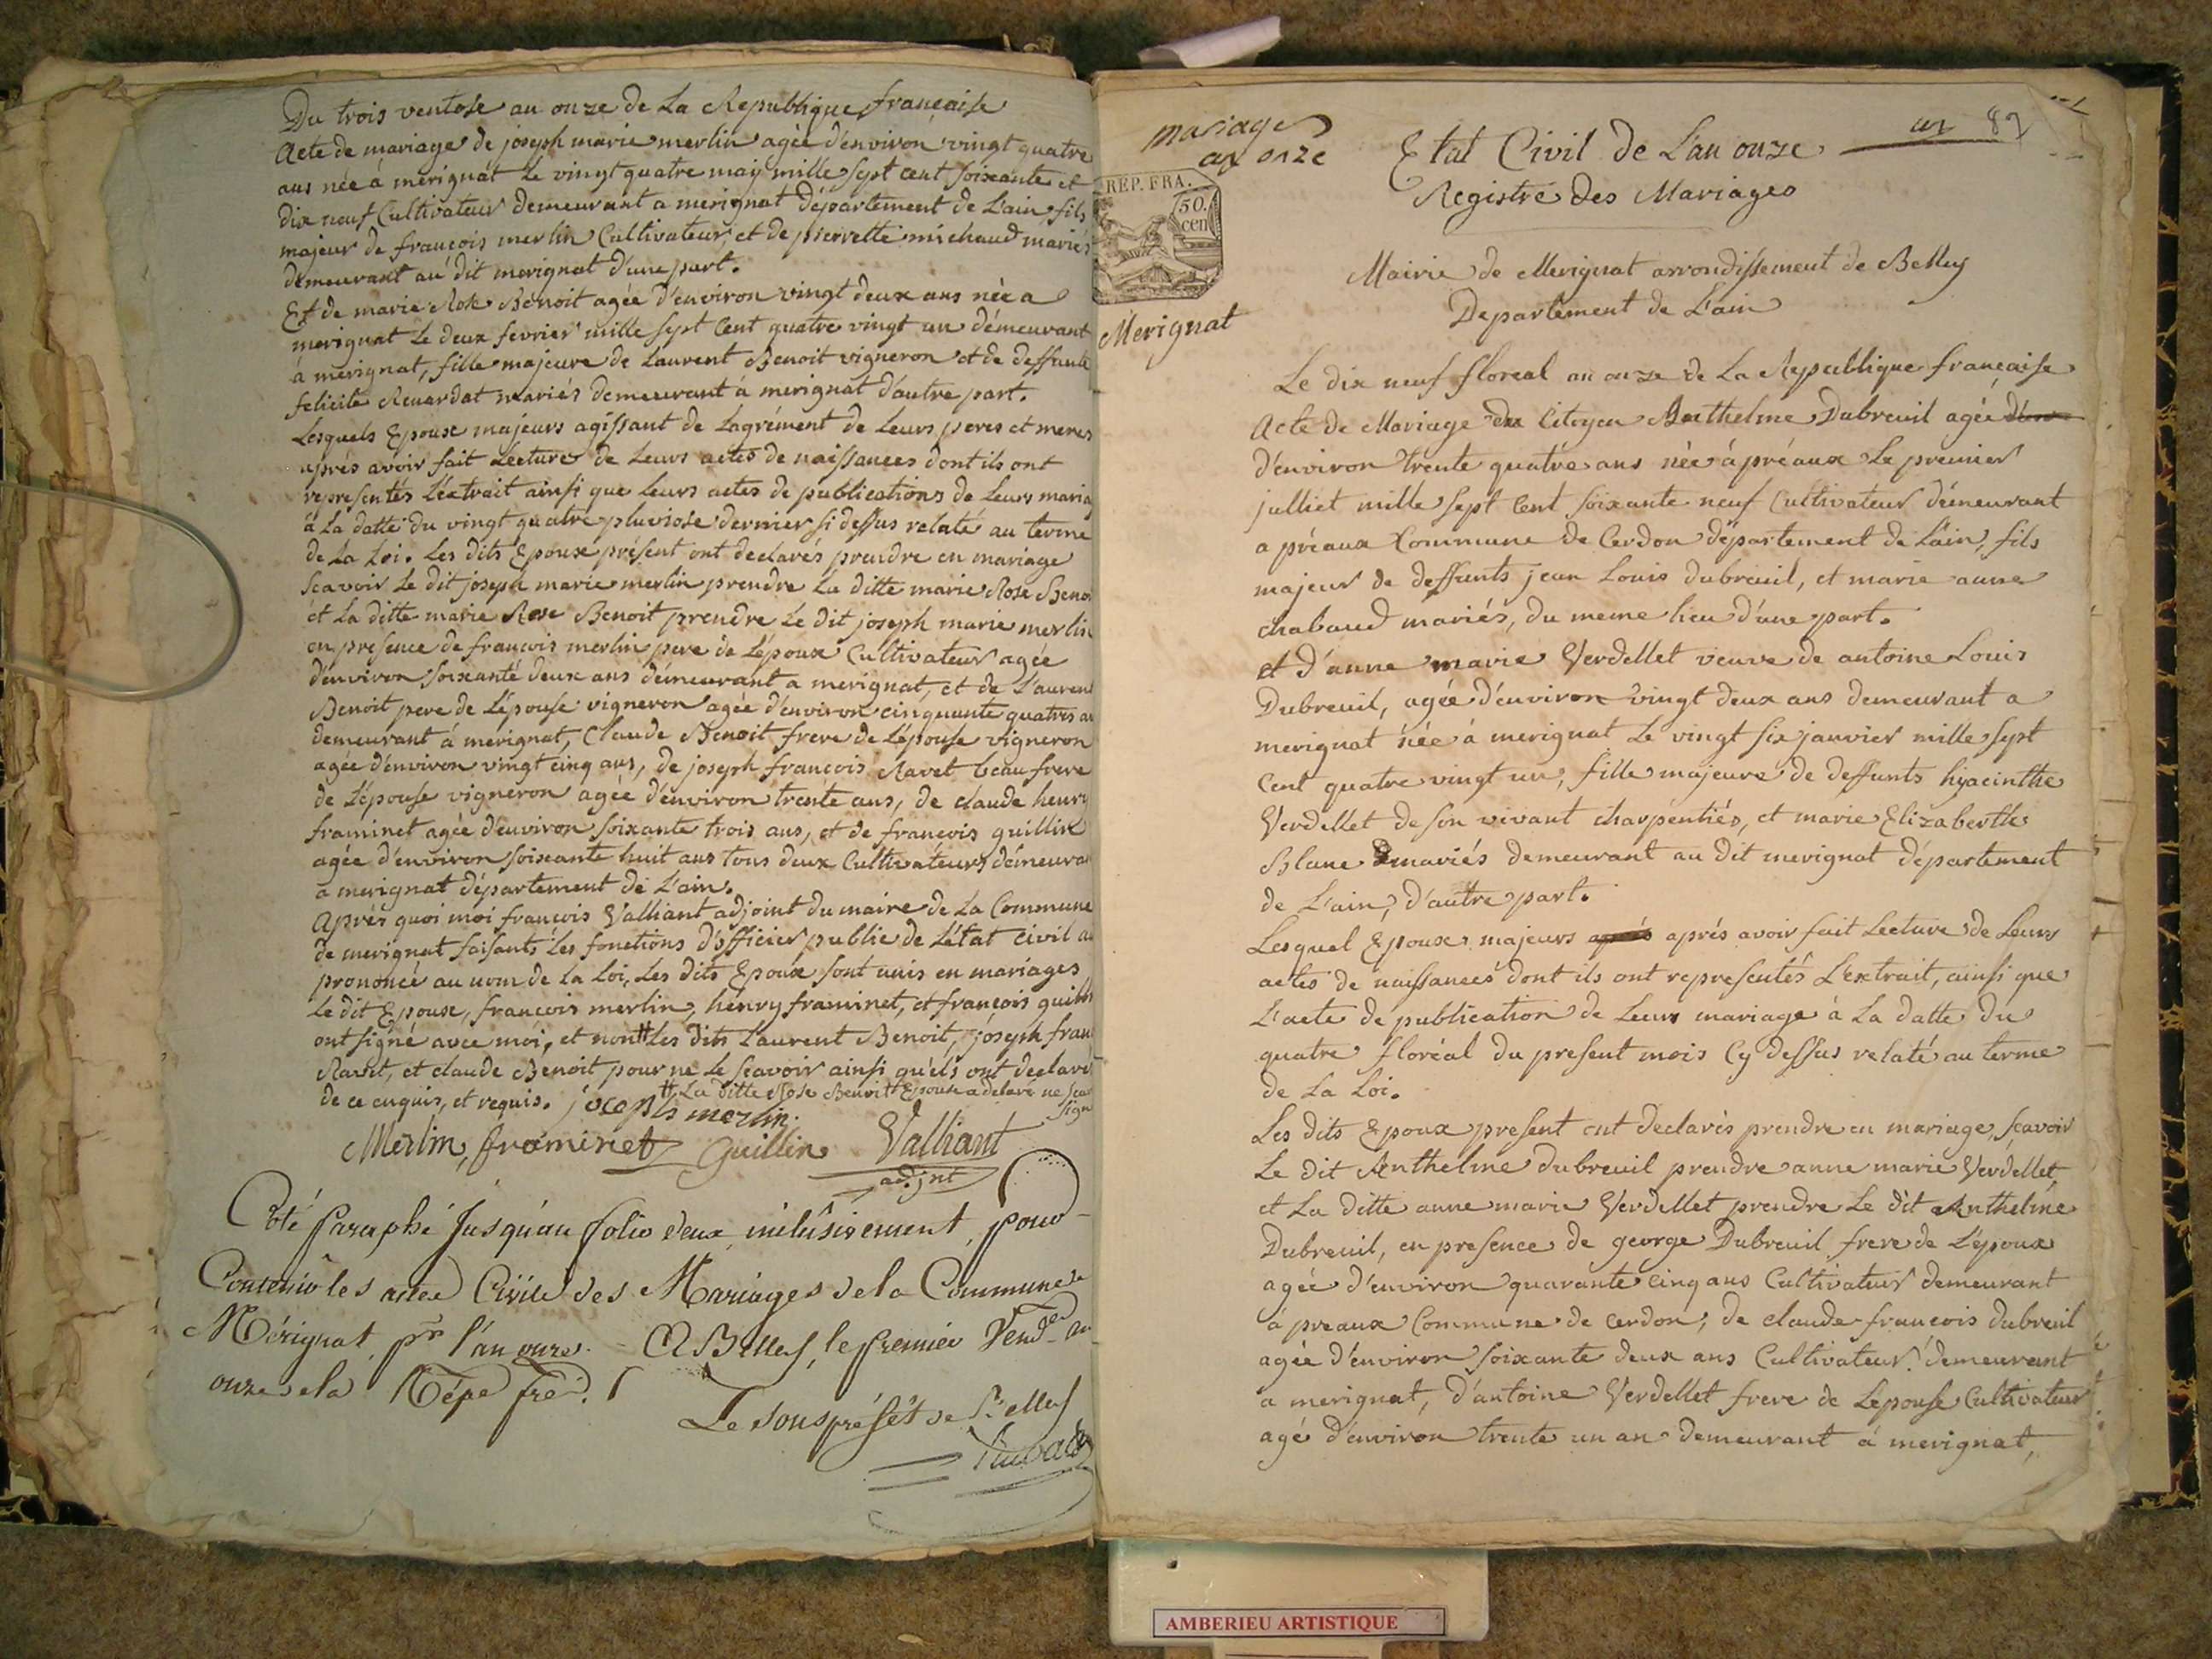 Du trois ventose an onze de La Republique française
Acte de mariage de joseph marie merlin agée d'environ vingt quatre
ans née à merignat le vingt quatre may mille sept cent soixante et
dix neuf Cultivateur demeurant a merignat département de L'ain, fils
majeur de françois merlin Cultivateur, et de pierrette michaud mariés
demeurant au dit merignat d'une part.
Et de marie Rose Benoit agée d'environ vingt deux ans née a
merignat Le deux fevrier mille sept Cent quatre vingt un démeurant
à merignat, fille majeure de Laurent Benoit vigneron et de deffunte
felicite Revardat mariés demeurant à merignat d'autre part.
Lesquels Epoux majeurs agissant de Lagrément de Leurs peres et meres
après avoir fait Lecture de Leurs actes de naissances dont ils ont
representés L'éxtrait ainsi que Leurs actes de publications de Leurs maria
à La datte du vingt quatre pluviose dernier si dessus relaté au terme
de La Loi. Les dits Epoux présent ont declarés prendre en mariage
scavoir Le dit joseph marie merlin prendre La ditte marie Rose Beno
et La ditte marie Rose Benoit prendre Le dit joseph marie merlin
en presence de françois merlin pere de L'époux Cultivateur agée
d'environ soixanté deux ans démeurant a merignat, et de Laurent
Benoit pere de L'épouse vigneron agée d'environ cinquante quatre an
demeurant à merignat, Claude Benoit frere de L'épouse vigneron
agée d'environ vingt cinq ans, de joseph françois Ravet beau frere
de L'épouse vigneron agée d'environ trente ans, de claude henry
framinet agée d'environ soixante trois ans, et de françois guillin
agée d'environ soixante huit ans tous deux Cultivateurs démeura
a merignat département de L'ain.
Après quoi moi françois Valliant adjoint du maire de La Commune
de merignat faisants Les fonctions d'officier public de L'état civil a
prononcé au nom de La Loi, Les dits Epoux sont unis en mariages
Le dit Epoux, françois merlin, henry framinet, et françois guillin
ont signé avec moi, et non # Les dits Laurent Benoit, joseph fran
Ravet, et claude Benoit pour ne Le scavoir ainsi qu'els ont declaré
de ce enquis, et requis. # La ditte Rose Benoit Epouse a declaré ne scav
sign
joseph merlin
Merlin, framinet Guillin Valliant
adjnt
Coté Paraphé Jusqu'au folio deux inclusivement, pour
Contenir les actes Civils des Mariages de la Commune de
Mérignat pr l'an onze. A Belley, le premier Vendre an
onze de la Répe free.
Le sous préfét de Belley
mariages
an onze
REP. FRA.
50.
cen
Merignat
un 87
Etat Civil de L'an onze
Registre des Mariages
Mairie de Merignat arrondissement de Belley
Departement de L'ain
Le dix neuf floreal an onze de La Republique française
Acte de Mariage du Citoyen Anthelme Dubreuil agée
d'environ trente quatre ans née à préaux Le premier
julliet mille sept Cent soixante neuf Cultivateur démeurant
a préaux Commune de Cerdon département de L'ain, fils
majeur de deffunts jean Louis dubreuil, et marie anne
chabaud mariés, du meme lieu d'une part.
et d'anne marie Verdellet veuve de antoine Louis
Dubreuil, agée d'environ vingt deux ans demeurant a
merignat née à merignat Le vingt six janvier mille sept
Cent quatre vingt un, fille majeure de deffunts hyacinthe
Verdellet de son vivant charpentiés, et marie Elizaberth
Blanc mariés demeurant au dit merignat département
de L'ain, d'autre part.
Lesquel Epoux majeurs après après avoir fait Lecture de Leurs
actes de naissances dont ils ont representés L'extrait, ainsi que
L'acte de publication de Leurs mariage à La datte du
quatre floréal du present mois Cy dessus relaté au terme
de La Loi.
Les dits Epoux present ont declarés prendre en mariage, scavoir
Le dit Anthelme Dubreuil prendre anne marie Verdellet,
et La ditte anne marie Verdellet prendre Le dit Anthelme
Dubreuil, en presence de george Dubreuil frere de L'époux
agée d'environ quarante cinq ans Cultivateur demeurant
à préaux Commune de Cerdon, de claude françois dubreuil
agée d'environ soixante deux ans Cultivateur demeurant
a merignat, d'antoine Verdellet frere de Lepouse Cultivateur
agé d'environ trente un an demeurant à merignat,
AMBERIEU ARTISTIQUE